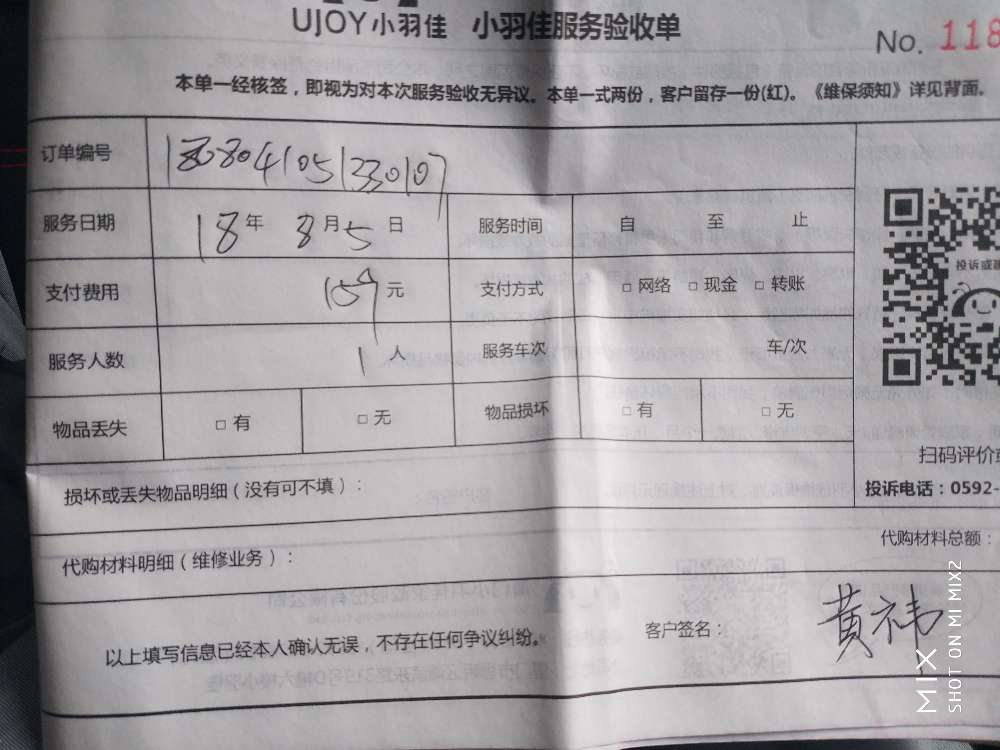 UJOY小羽佳 小羽佳服务验收单
No. 118
本单一经核签，即视为对本次服务验收无异议。本单一式两份，客户留存一份(红)。《维保须知》详见背面。
订单编号
服务日期 18年 8月5日 服务时间 自 至 止
投诉或建
支付费用 159元 支付方式 □网络 □现金 □转账
服务人数 1人 服务车次 车/次
物品丢失 □有 □无 物品损坏 □有 □无
扫码评价或
损坏或丢失物品明细（没有可不填）：
投诉电话：0592-
代购材料明细（维修业务）：
代购材料总额：
以上填写信息已经本人确认无误，不存在任何争议纠纷。
客户签名：黄祎
MIX
SHOT ON MI MIX2